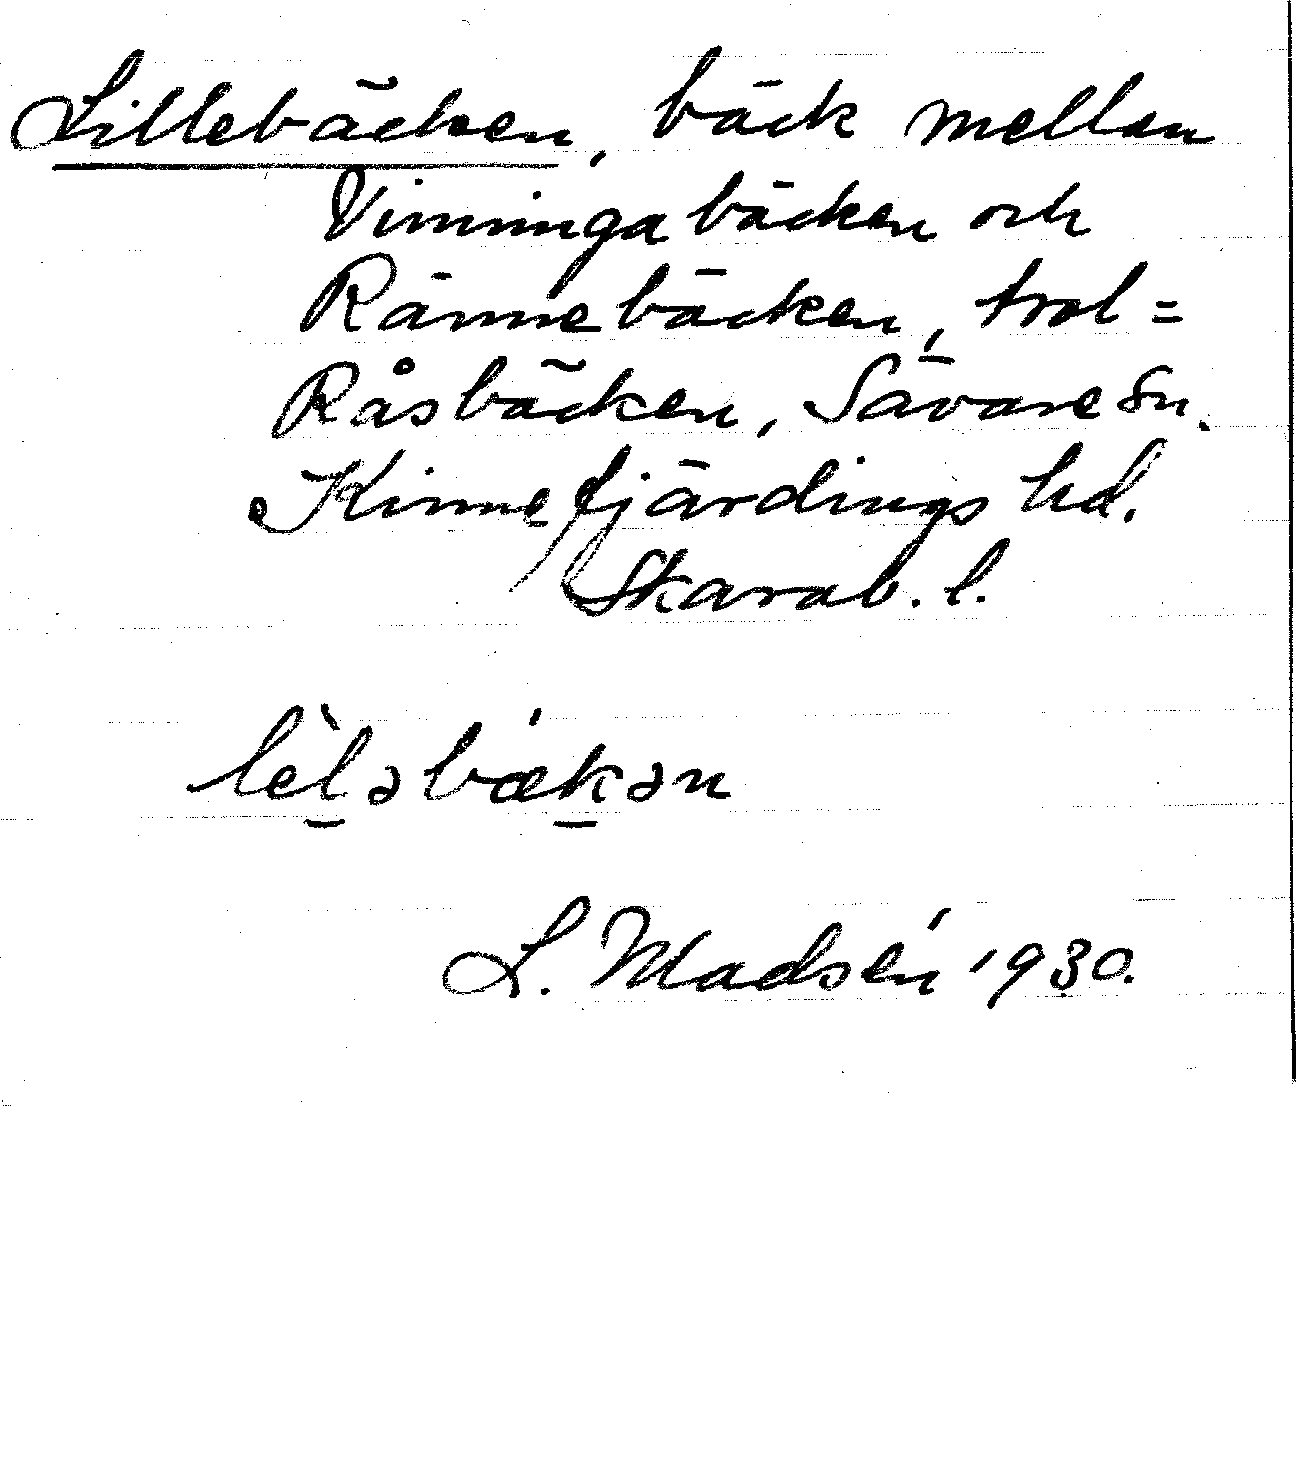 Lillebäcken, bäck mellan
Vinninga bäcken och
Rännebäcken, trol =
Råsbäcken, Sävare sn.
Kinnefjärdings hd.
Skarab. l.
lèləbækən
L. Madsén 1930.